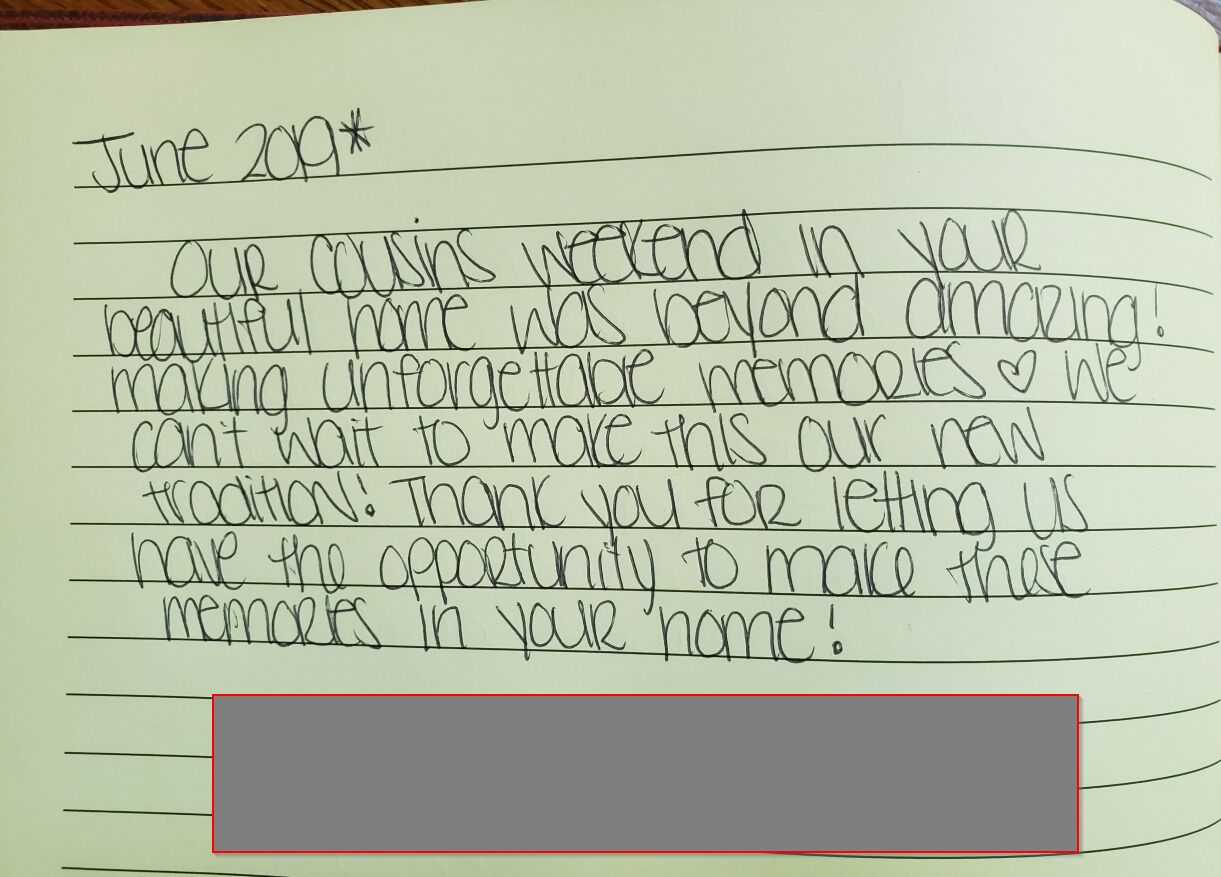 June 2019*
Our cousins weekend in your
beautiful home was beyond amazing!
making unforgettable memories ♡ We
can't wait to make this our new
tradition! Thank you for letting us
have the opportunity to make these
memories in your home!